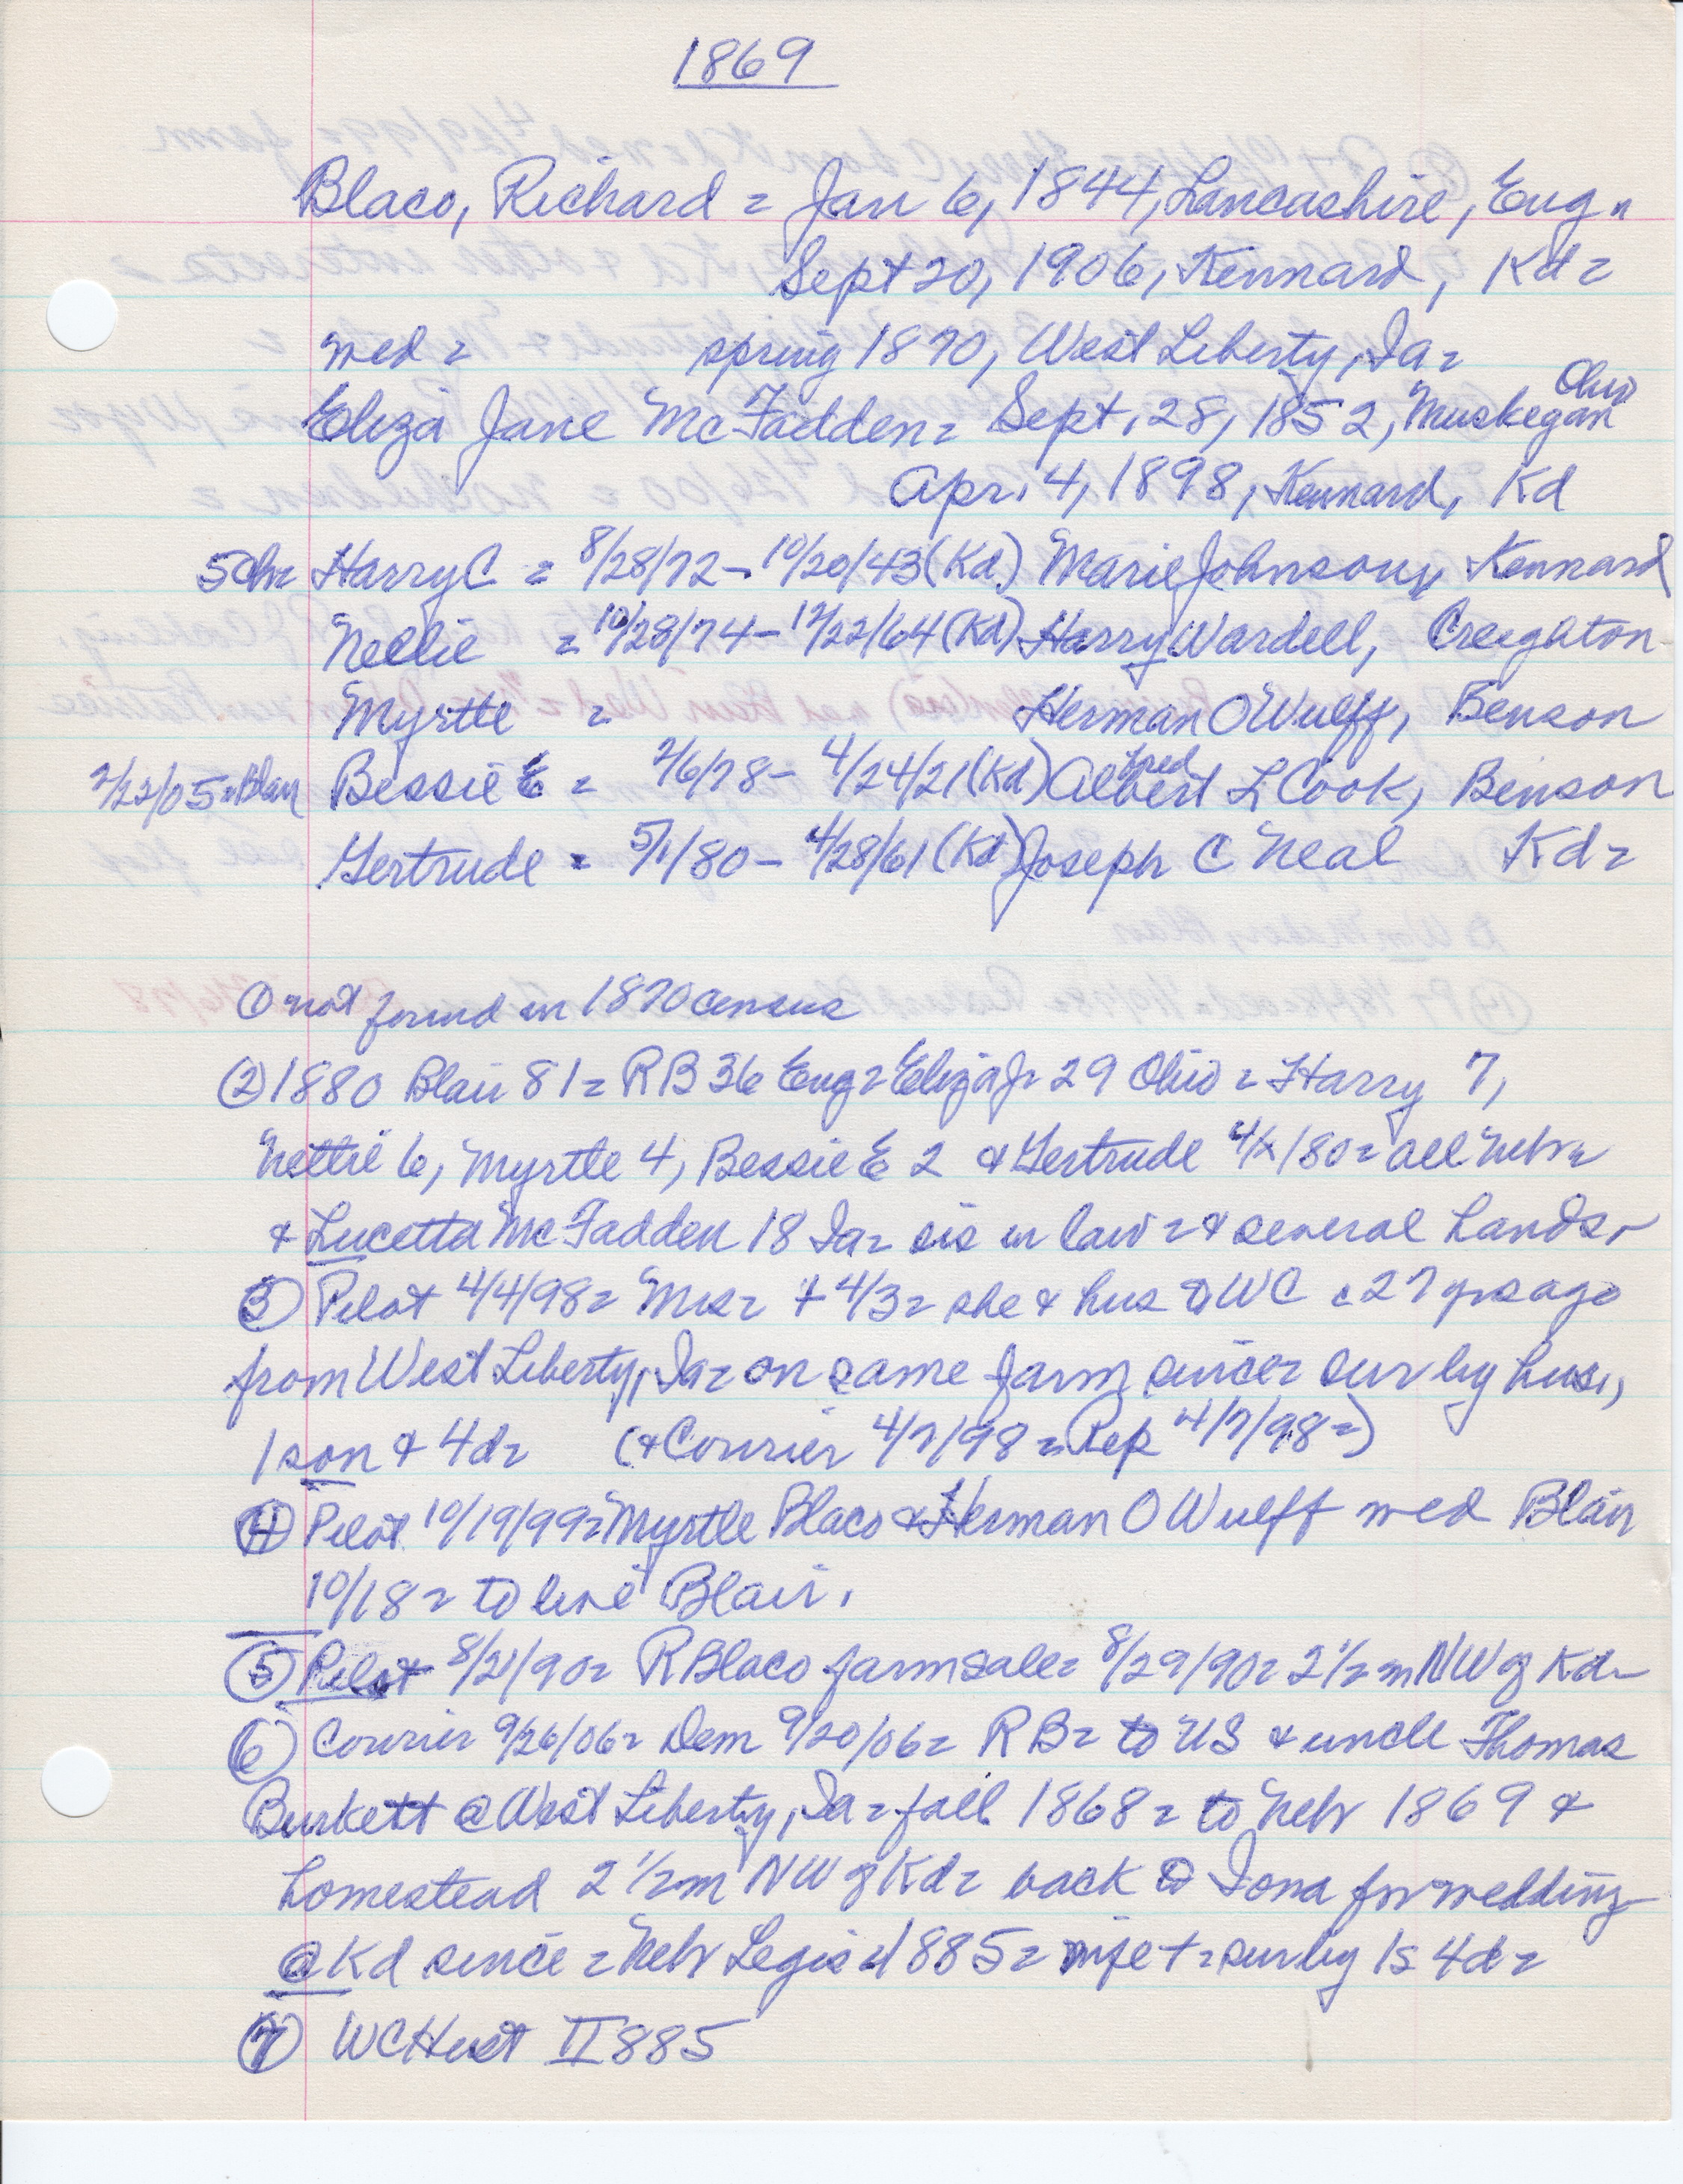 1869
Blaco, Richard = Jan 6, 1844, Lancashire, Eng =
Sept 20, 1906, Kennard, Kd =
wed = spring 1870, West Liberty, Ia =
Ohio
Eliza Jane McFadden = Sept. 28, 1852, Muskegan
Apr. 4, 1898, Kennard, Kd
5 Ch = Harry C = 8/28/72 - 10/20/43 (Kd) Marie Johnson, Kennard
Nellie = 10/28/74 - 12/22/64 (Kd) Harry Wardell, Creighton
Myrtle = Herman O Wulff, Benson
2/22/05 = Blair Bessie E = 2/6/78 - 4/24/21 (Kd) Albert fred L Cook, Benson
Gertrude = 5/1/80 - 4/28/61 (Kd) Joseph C Neal Kd =
① not found in 1870 census
② 1880 Blair 81 = RB 36 Eng = Eliza J = 29 Ohio = Harry 7,
Nettie 6, Myrtle 4, Bessie E 2 & Gertrude 4/x/80 = all Nebr =
& Lucetta McFadden 18 Ia = sis in law = & several hands =
③ Pilot 4/4/98 = Mrs = + 4/3 = she & hus to WC c 27 yrs ago
from West Liberty, Ia = on same farm since = sur by hus,
1 son & 4d = (& Courier 4/7/98 = Rep 4/7/98 =)
④ Pilot 10/19/99 = Myrtle Blaco & Herman O Wulff wed Blair
10/18 = to live Blair.
⑤ Pilot 8/21/90 = R Blaco farm sale = 8/29/90 = 2 1/2 m NW of Kd =
⑥ Courier 9/26/06 = Dem 9/20/06 = RB = to US & uncle Thomas
Burkett @ West Liberty, Ia = fall 1868 = to Nebr 1869 &
homestead 2 1/2 m NW of Kd = back to Iowa for wedding
@ Kd since = Nebr Legis 1885 = wife + = sur by 1s 4d =
⑦ WC Hist II 885